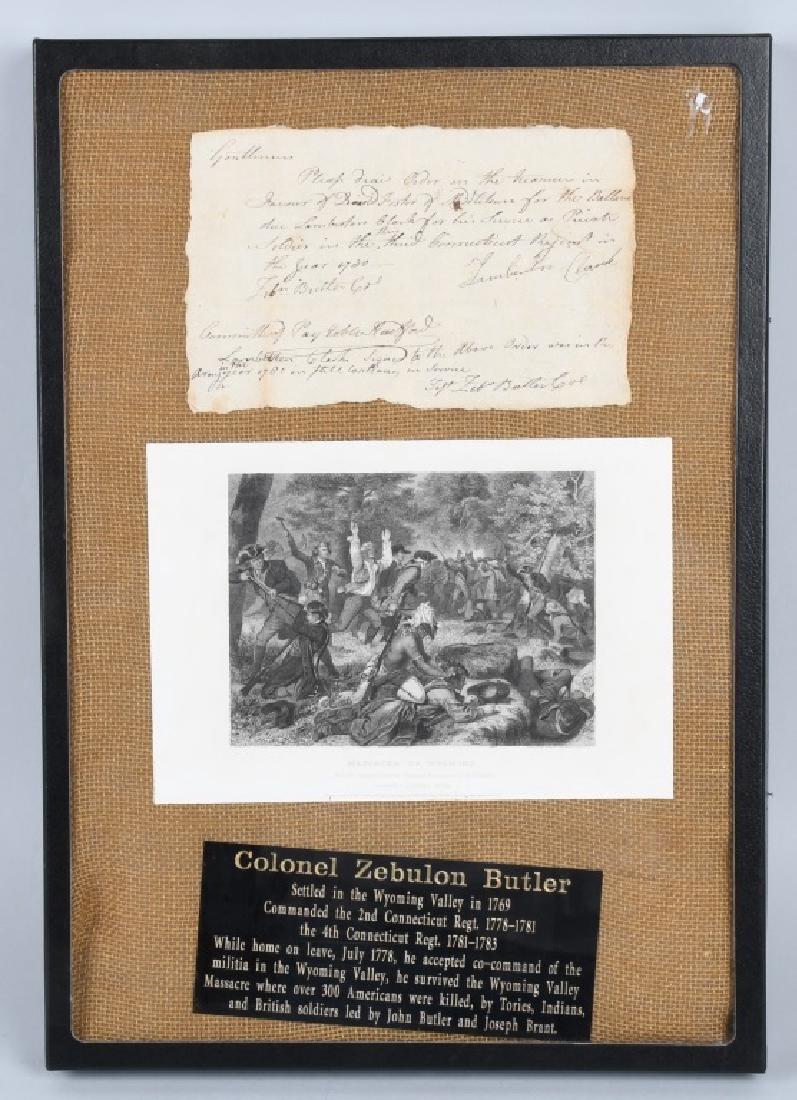 Gentlemen
Pleas draw Order on the in
favour of David Foster of Middletown for the Ballance
due Lamberton Clark for his Service as Private
Soldier in the third Connecticut Regimt in
the year 1780
Lamberton Clark
Zebn Butler Col
Committe of Pay Table Hartford
Lamberton Clark Signed to the Above Order was in the
Army in the year 1780 on still Continues in Service
Test Zebn Butler Col
MASSACRE OF WYOMING
Colonel Zebulon Butler
Settled in the Wyoming Valley in 1769
Commanded the 2nd Connecticut Regt. 1778-1781
the 4th Connecticut Regt. 1781-1783
While home on leave, July 1778, he accepted co-command of the
militia in the Wyoming Valley, he survived the Wyoming Valley
Massacre where over 300 Americans were killed, by Tories, Indians,
and British soldiers led by John Butler and Joseph Brant.